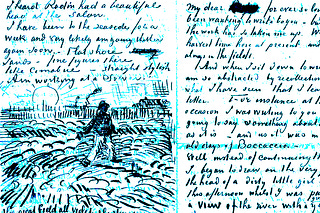 I heard Rodin had a beautiful
head at the Salon.
I have been to the seaside for a
week and very likely am going thither
again soon. — Flat shore
sands — fine figures there
like Cimabue — straight stylish
Am working at a Sower.
great field all violet the
My dear for ever so long
been wanting to write to you — but
the work has so taken me up. We
harvest time here at present and
always in the fields.
And when I sit down to
am so abstracted by recollections
what I have seen that I
letter. For instance at the
occasion I was writing to you
going to say something about
as it is — and as it was
old days of Boccaccio.
Well instead of continuing the
I began to draw on the very
the head of a dirty little girl
this afternoon whilst I was
a view of the river with a